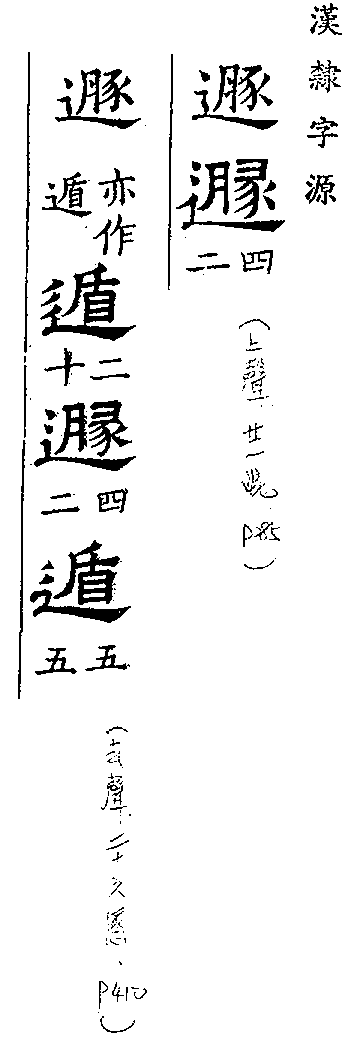 漢隸字源
遯遯四二
(上聲廿一
遯亦作遁遁二十遯四二遁五五
(去聲二十六慁、P410)